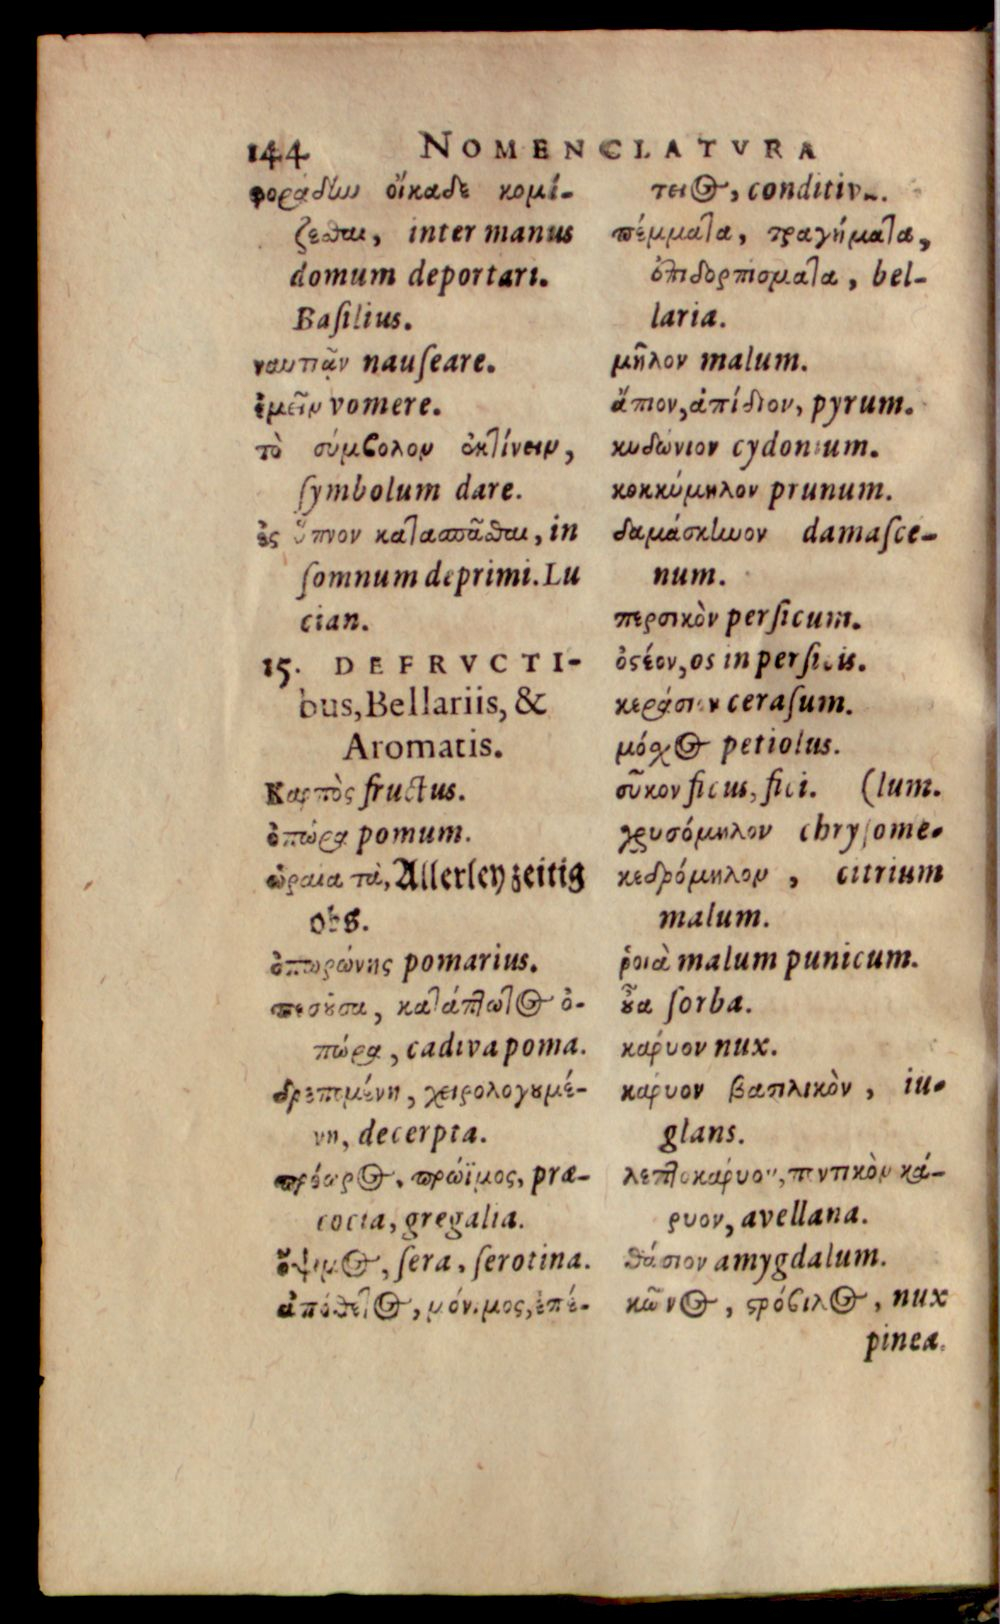 144 NOMENCLATVRA
φοράδην οἴκαδε κομί-
ζεσθαι, inter manus
domum deportari.
Baſilius.
ναυτιᾷν nauſeare.
ἐμεῖν vomere.
τὸ σύμϐολον ἐκτίνειν,
ſymbolum dare.
ἐς ὕπνον κατασπᾶσθαι, in
ſomnum deprimi. Lu
cian.
15. DE FRVCTI-
bus, Bellariis, &
Aromatis.
Καρπὸς fructus.
ὀπώρα pomum.
ὡραῖα τὰ, Allerley zeitig
obs.
ὀπωρώνης pomarius.
πεσοῦσα, κατάπτωτος ὀ-
πώρα, cadiva poma.
δρεπομένη, χειρολογουμέ-
νη, decerpta.
πρόωρος, πρώϊμος, præ-
cocia, gregalia.
ὄψιμος, ſera, ſerotina.
ἀπόθετος, μόνιμος, ἐπέ-
τειος, conditiv..
πέμματα, τραγήματα,
ἐπιδορπίσματα, bel-
laria.
μῆλον malum.
ἄπιον, ἀπίδιον, pyrum.
κυδώνιον cydonium.
κοκκύμηλον prunum.
δαμάσκηνον damaſce-
num.
περσικὸν perſicum.
ὀστέον, os in perſicis.
κεράσιον ceraſum.
μόσχος petiolus.
σῦκον ficus, fici. (lum.
χρυσόμηλον chryſome-
κεδρόμηλον, citrium
malum.
ῥοιὰ malum punicum.
οὖα ſorba.
κάρυον nux.
κάρυον βασιλικὸν, iu-
glans.
λεπτοκάρυον, ποντικὸν κά-
ρυον, avellana.
θάσιον amygdalum.
κῶνος, στρόϐιλος, nux
pinea.